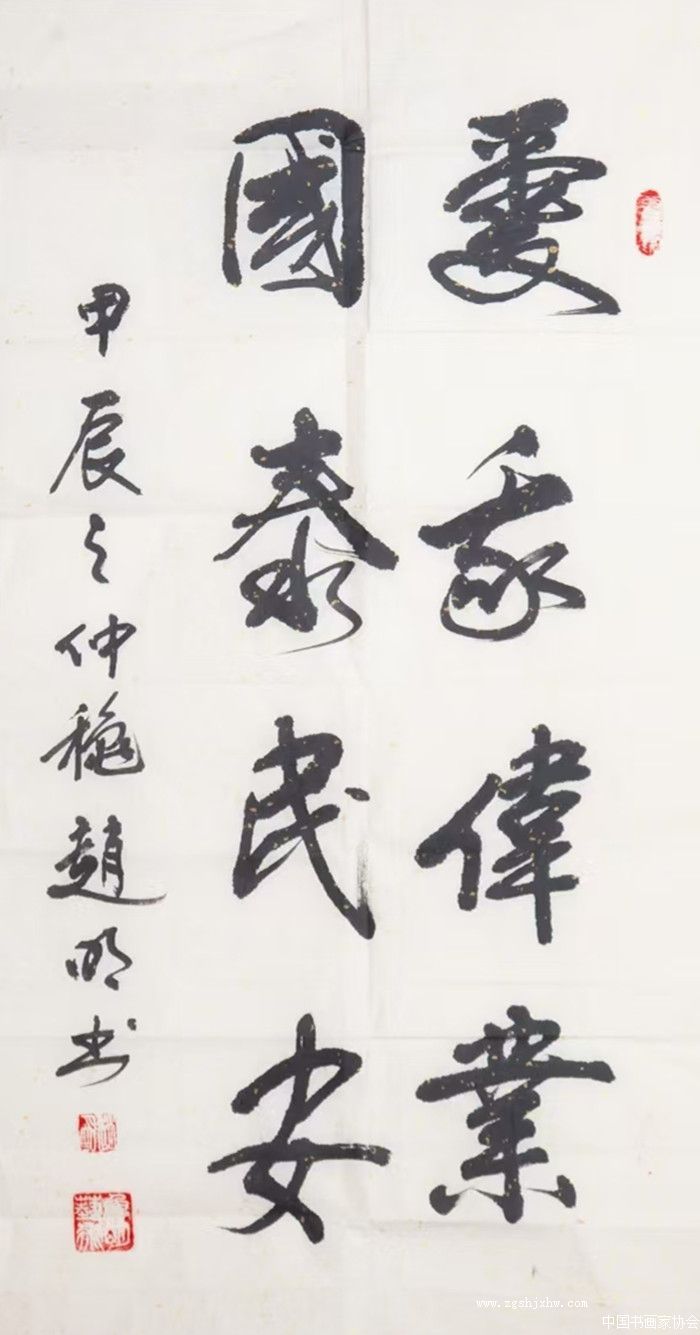 愛我偉業
國泰民安
甲辰之仲穐趙明书
www.zgshjxhw.com
中国书画家协会